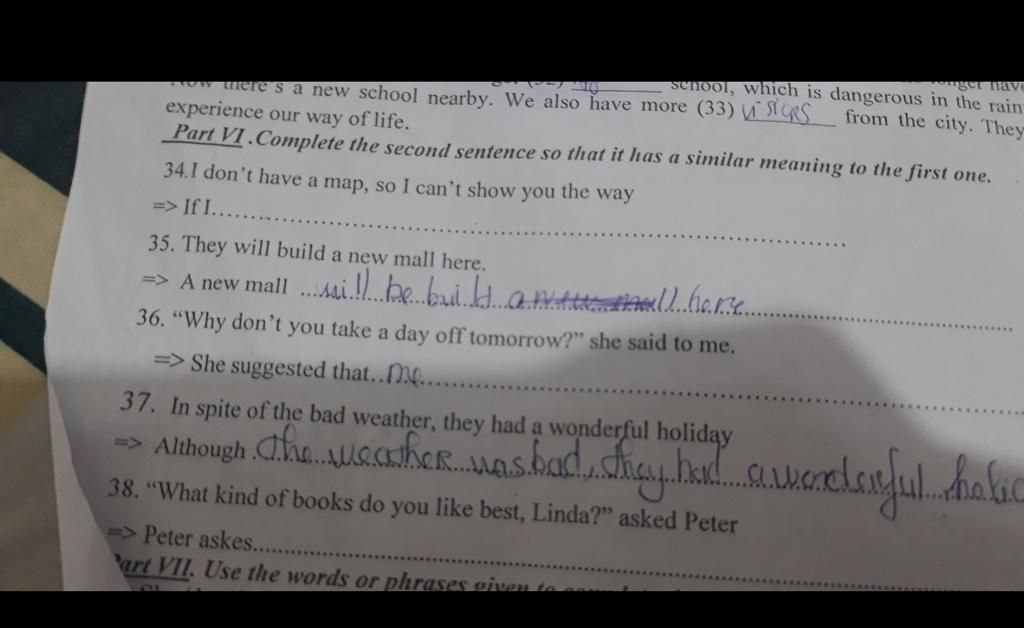 there's a new school nearby. We also have more (33) visitors from the city. They
school, which is dangerous in the rain
experience our way of life.
Part VI .Complete the second sentence so that it has a similar meaning to the first one.
34.I don't have a map, so I can't show you the way
=> If I......................................................
35. They will build a new mall here.
=> A new mall ...will be build here...............
36. “Why don't you take a day off tomorrow?” she said to me.
=> She suggested that..me..............................
37. In spite of the bad weather, they had a wonderful holiday
=> Although .the weather was bad, they had a wonderful
38. “What kind of books do you like best, Linda?” asked Peter
=> Peter askes..................................................
Part VII. Use the words or phrases given to